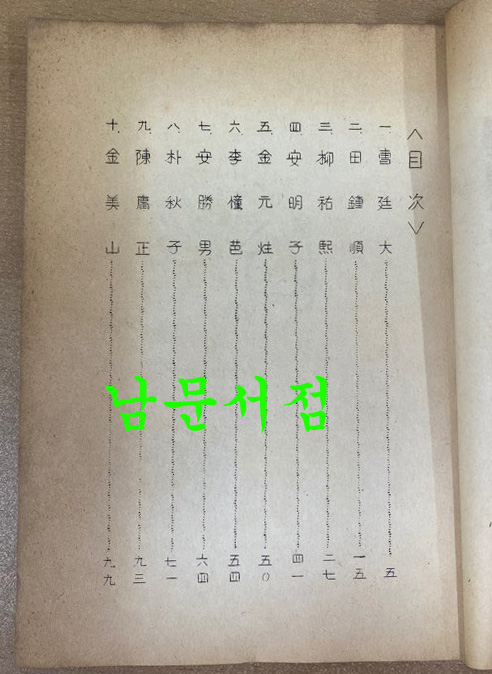 <目次>
一. 曺廷大 五
二. 田鍾順 一五
三. 柳祐熙 二七
四. 安明子 四一
五. 金元 五〇
六. 李 芭 五四
七. 安勝男 六四
八. 朴秋子 七一
九. 陳庸正 九三
十. 金美山 九九
남문서점